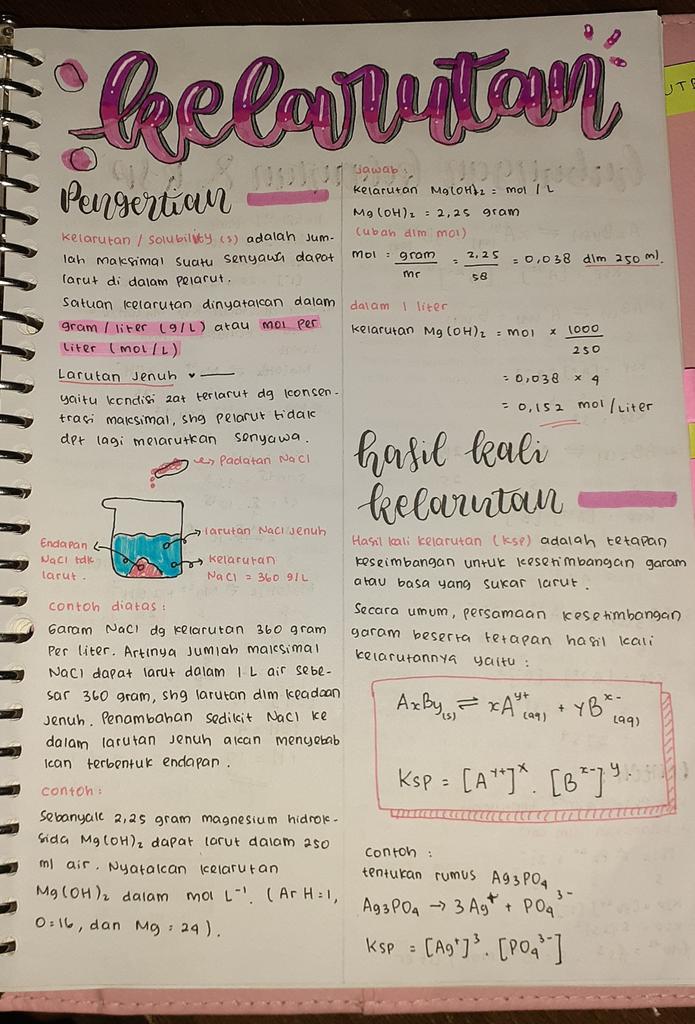 kelarutan
Pengertian
Kelarutan / Solubility (s) adalah jum-
lah maksimal suatu senyawa dapat
larut di dalam pelarut.
Satuan kelarutan dinyatakan dalam
gram/liter (g/L) atau mol per
liter (mol/L)
Larutan Jenuh
yaitu kondisi zat terlarut dg konsen-
trasi maksimal, shg pelarut tidak
dpt lagi melarutkan senyawa.
Padatan NaCl
larutan NaCl jenuh
Endapan
NaCl tdk
larut.
Kelarutan
NaCl = 360 g/L
contoh diatas :
Garam NaCl dg kelarutan 360 gram
Per liter. Artinya jumlah maksimal
NaCl dapat larut dalam 1 L air sebe-
sar 360 gram, shg larutan dlm keadaan
jenuh. Penambahan sedikit NaCl ke
dalam larutan jenuh akan menyebab
kan terbentuk endapan.
contoh :
Sebanyak 2,25 gram magnesium hidrok-
sida Mg(OH)₂ dapat larut dalam 250
ml air. Nyatakan kelarutan
Mg(OH)₂ dalam mol L⁻¹. (Ar H=1,
O=16, dan Mg = 24).
jawab :
Kelarutan Mg(OH)₂ = mol / L
Mg(OH)₂ = 2,25 gram
(ubah dlm mol)
mol = gram/mr = 2,25/58 = 0,038 dlm 250 ml.
dalam 1 liter
Kelarutan Mg(OH)₂ = mol × 1000/250
= 0,038 × 4
= 0,152 mol/Liter
hasil kali
kelarutan
Hasil kali kelarutan (Ksp) adalah tetapan
keseimbangan untuk kesetimbangan garam
atau basa yang sukar larut.
Secara umum, persamaan kesetimbangan
garam beserta tetapan hasil kali
kelarutannya yaitu :
AxBy(s) ⇌ xA^y+(aq) + yB^x-(aq)
Ksp = [A^y+]^x . [B^x-]^y.
contoh :
tentukan rumus Ag₃PO₄
Ag₃PO₄ → 3Ag⁺ + PO₄³⁻
Ksp = [Ag⁺]³ . [PO₄³⁻]